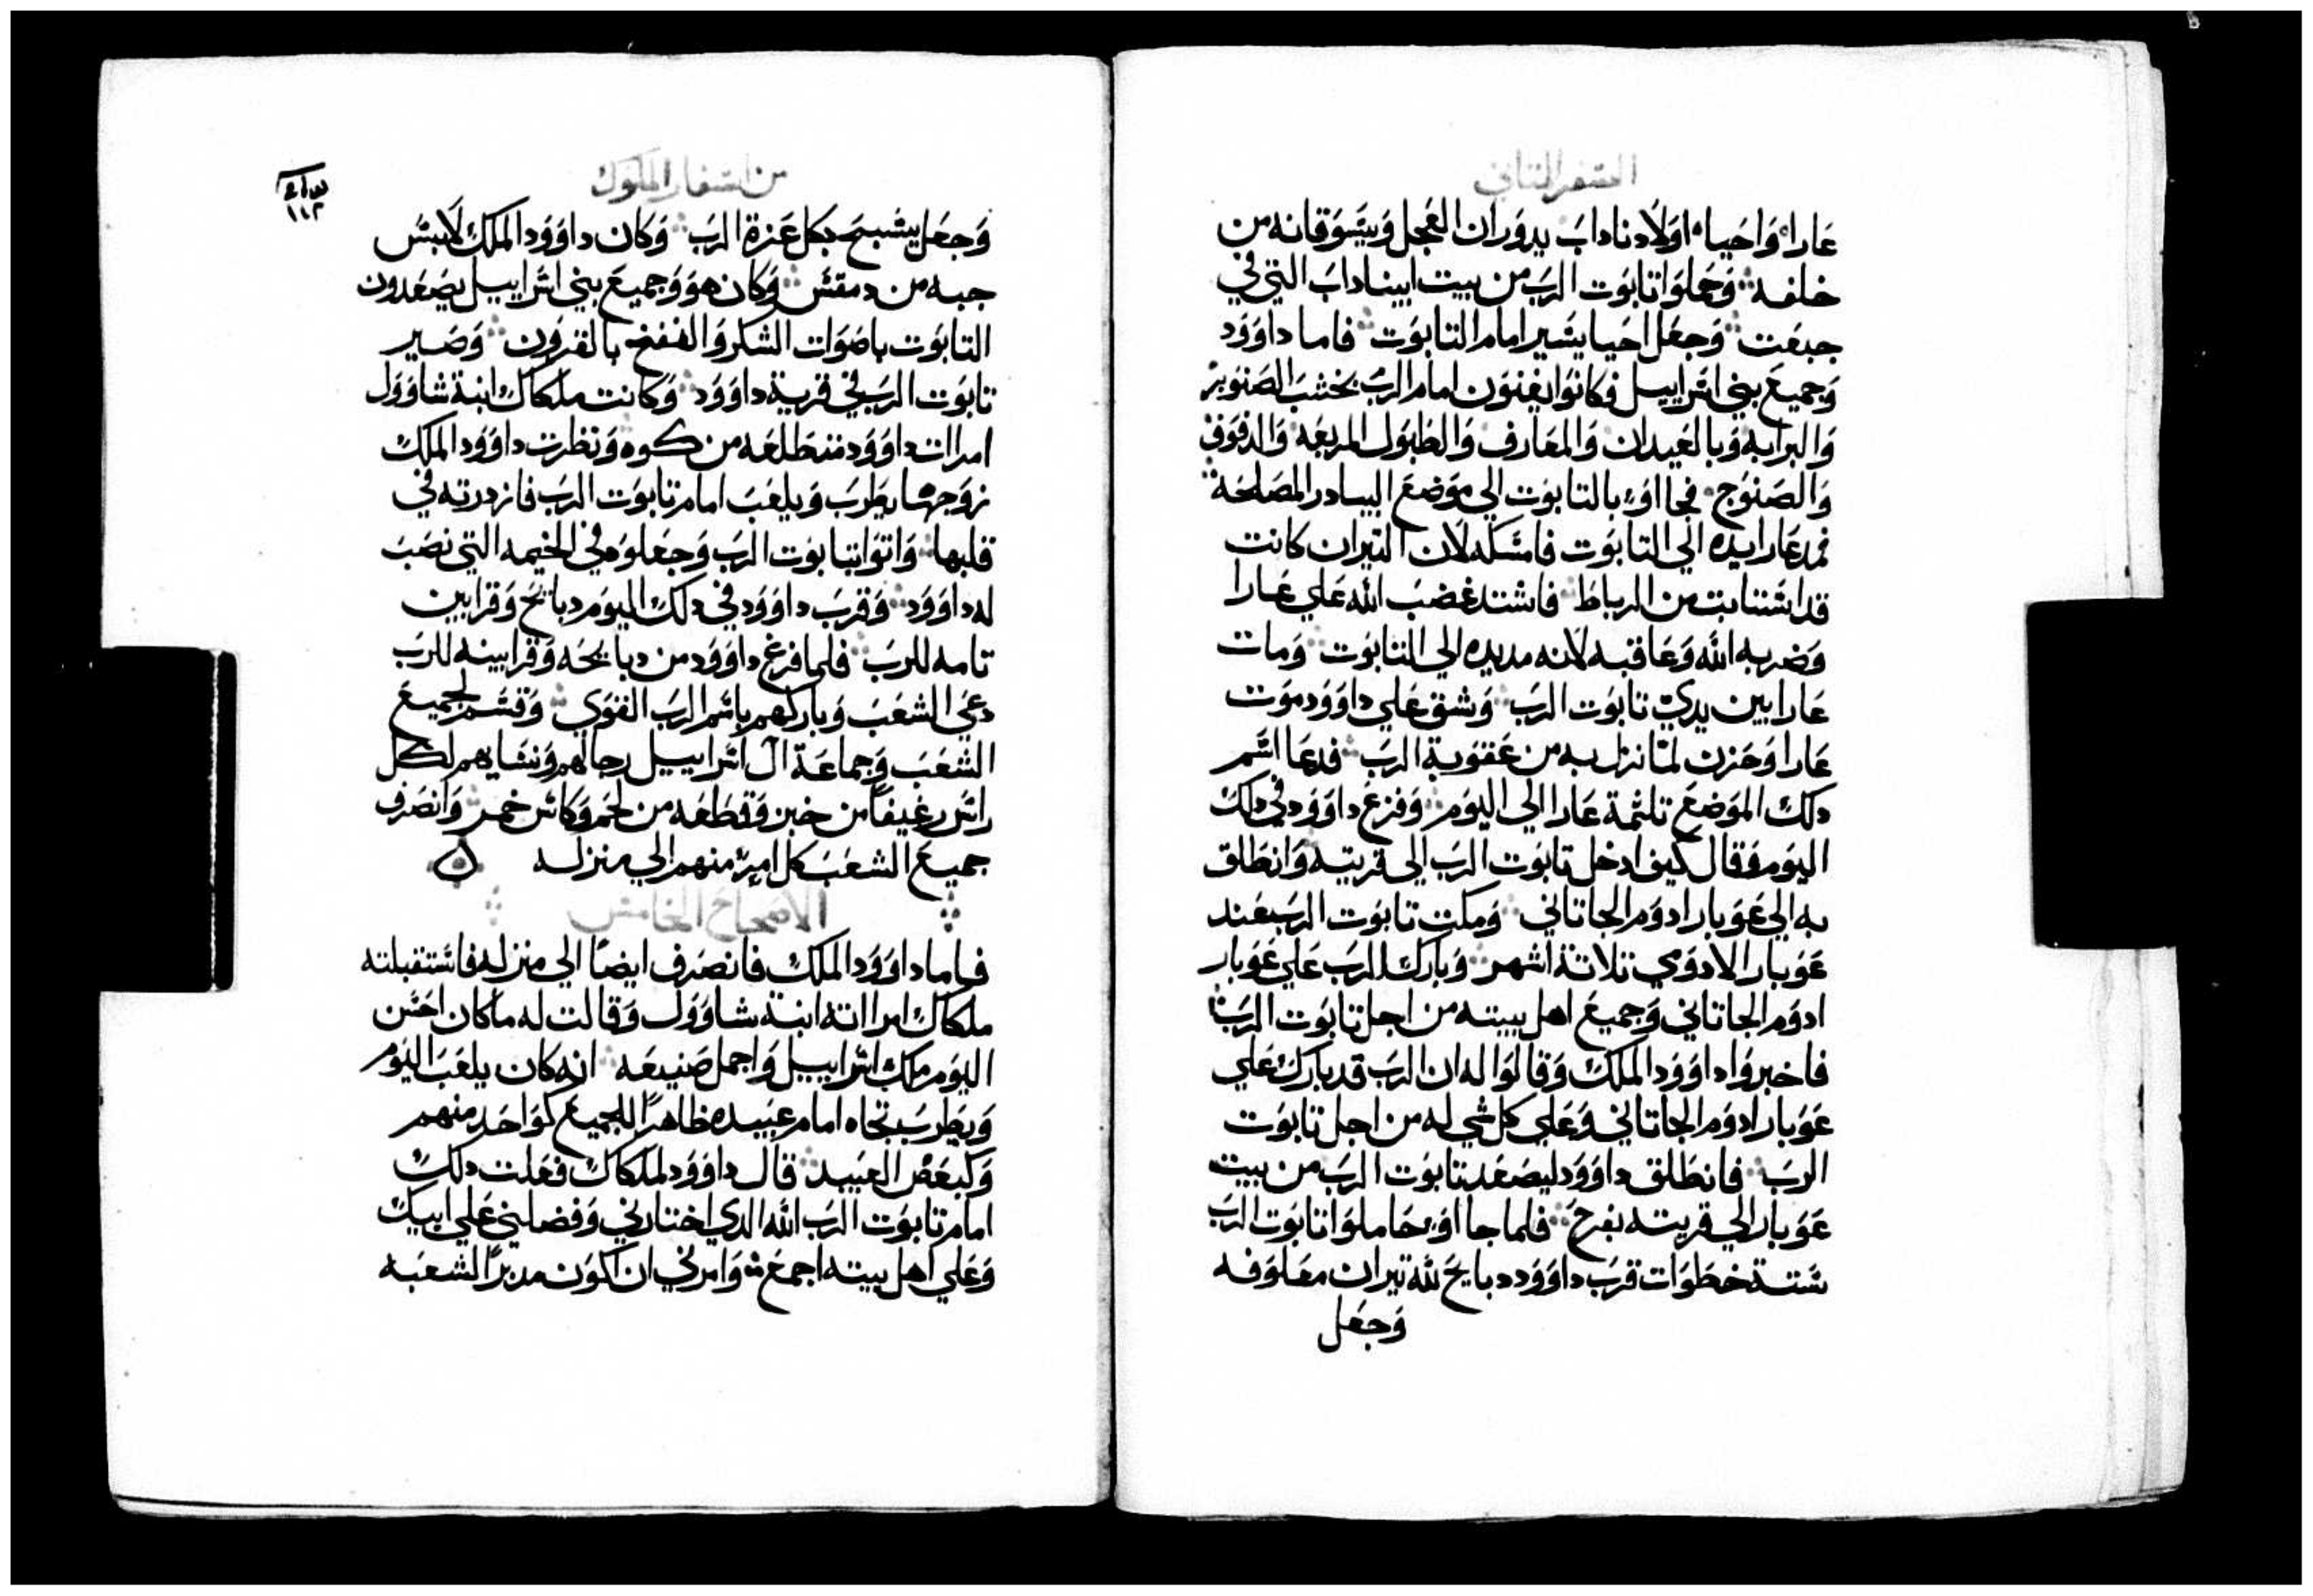 السفر الثاني
عارا واحيا اولاد ناداب يدوران العجل ويسوقانه من
خلفه وحملوا تابوت الرب من بيت ابيناداب التي في
جبعت وجعل احيا يسير امام التابوت فاما داوود
وجميع بني اسراييل فكانوا يغنون امام الرب بخشب الصنوبر
والبرابه وبالعيدان والمعارف والطبول المربعه والدفوف
والصنوج فجااو بالتابوت الي موضع البيادر المصلحه
فمد عارا يده الي التابوت فامسكه لان التيران كانت
قد استتابت من الرباط فاشتد غضب الله علي عارا
وضربه الله وعاقبه لانه مد يده الي التابوت ومات
عارا بين يدي تابوت الرب وشق علي داوود موت
عارا وحزن لما نزل به من عقوبة الرب فدعا اسم
دلك الموضع تلمة عارا الي اليوم وفزع داوود في دلك
اليوم وقال كيف ادخل تابوت الرب الي قريته وانطلق
به الي عوبار ادوم الجاتاني ومكت تابوت الرب عند
عوبار الادومي تلاتة اشهر وبارك الرب علي عوبار
ادوم الجاتاني وجميع اهل بيته من اجل تابوت الرب
فاخبروا داوود الملك وقالوا له ان الرب قد بارك علي
عوبار ادوم الجاتاني وعلي كل شي له من اجل تابوت
الرب فانطلق داوود ليصعد تابوت الرب من بيت
عوبار الي قريته بفرح فلما جااو حاملوا تابوت الرب
ستة خطوات قرب داوود دبايح لله تيران معلوفه
وجعل
من اسفار الملوك
١١٢
وجعل يسبح بكل عزة الرب وكان داوود الملك لابس
جبه من دمقس وكان هو وجميع بني اسراييل يصعدون
التابوت باصوات الشكر والنفخ بالقرون وصير
تابوت الرب في قرية داوود وكانت ملكاك ابنة شاوول
امرات داوود متطلعه من كوه ونظرت داوود الملك
زوجها يطرب ويلعب امام تابوت الرب فازدرته في
قلبها واتوا بتابوت الرب وجعلوه في الخيمه التي نصب
له داوود وقرب داوود في دلك اليوم دبايح وقرابين
تامه للرب فلما فرغ داوود من دبايحه وقرابينه للرب
دعي الشعب وباركهم باسم الرب القوي وقسم لجميع
الشعب وجماعة ال اسراييل رجالهم ونسايهم لكل
راس رغيفا من خبز وقطعه من لحم وكاس خمر وانصرف
جميع الشعب كل امرء منهم الي منزله
الاصحاح الخامس
فاما داوود الملك فانصرف ايضا الي منزله فاستقبلته
ملكاك امراته ابنة شاوول وقالت له ما كان احسن
اليوم ملك اسراييل واجمل صنيعه انه كان يلعب اليوم
ويطرب تجاه امام عبيده ظاهرا للجميع كواحد منهم
وكبعض العبيد قال داوود لملكاك فعلت دلك
امام تابوت الرب الله الدي اختارني وفضلني علي ابيك
وعلي اهل بيته اجمع وامرني ان اكون مدبرا لشعبه